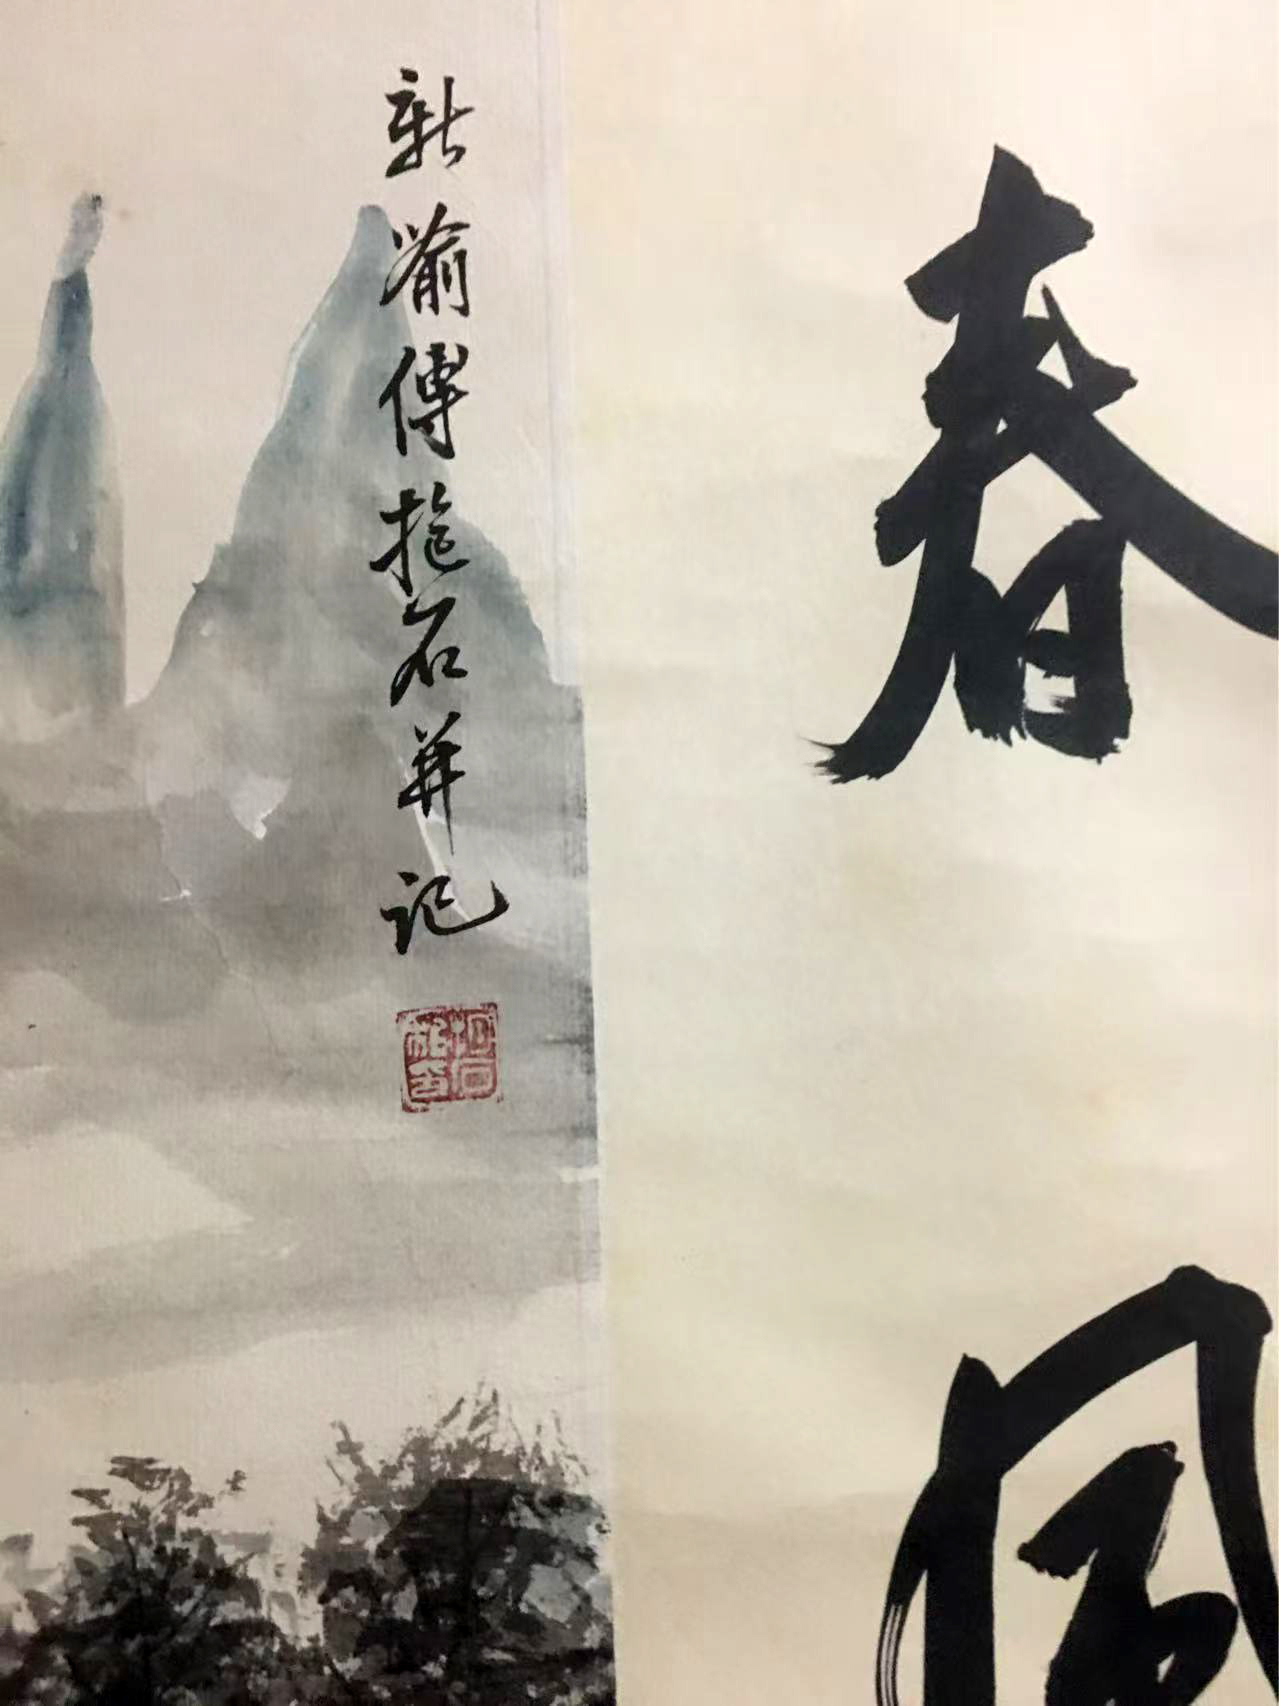 春风
新喻傅抱石并记